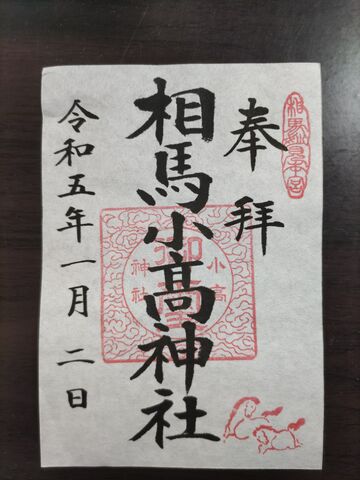 奉拝
相馬妙見本宮
相馬小高神社
小高
神社
令和五年一月二日